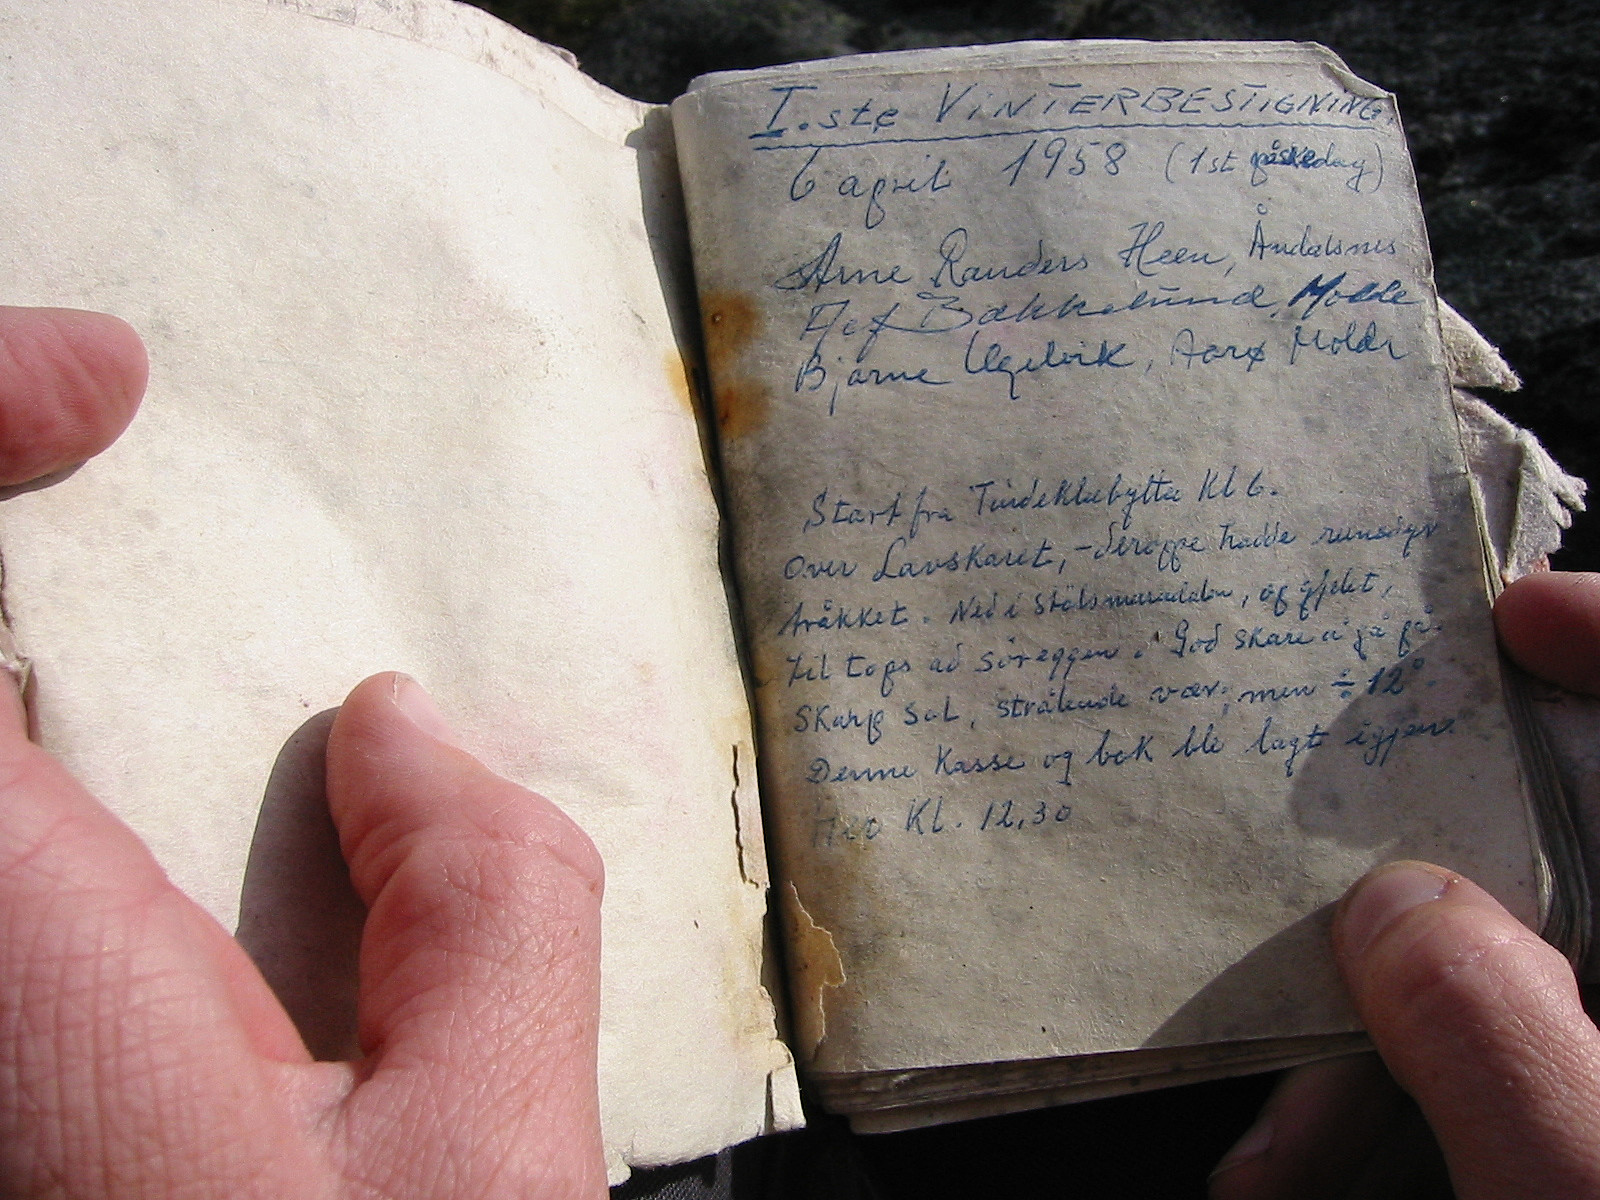 I.ste VINTERBESTIGNING
6 april 1958 (1st påskedag)
Arne Randers Heen, Åndalsnes
Bakkelund, Molde
Bjarne Molde
Start fra Tindeklubhytta Kl 6.
Over Lavskaret, – deroppe hadde reinsdyr
tråkket. Ned i og gjelet,
til tops ad söreggen. God skare å gå på.
Skarp sol, strålende vær, men ÷ 12°.
Denne Kasse og bok ble lagt igjen
Her Kl. 12,30